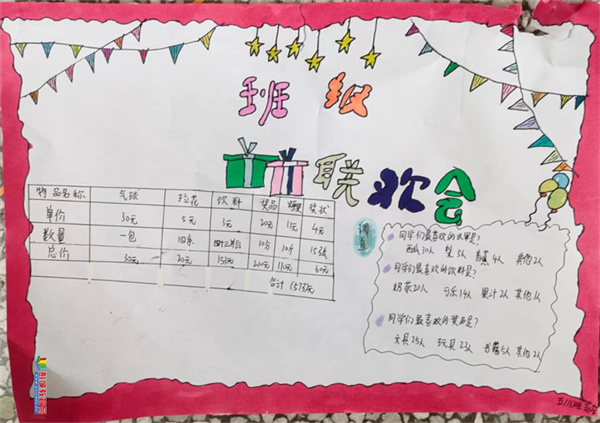 班级
联欢会
物品名称 气球 拉花 饮料 奖品 奖状
单价 30元 5元 3元 20元 1元 4元
数量 一包 四条 10份 15张
总价 30元 20元 153元 200元 110元 60元
合计 1573元
调查
同学们最喜欢的水果是?
西瓜30人 梨3人 4人 其他2人
同学们最喜欢的饮料是?
奶茶20人 可乐14人 果汁2人 其他1人
同学们最喜欢的奖品是?
文具25人 玩具23人 书籍5人 其他2人